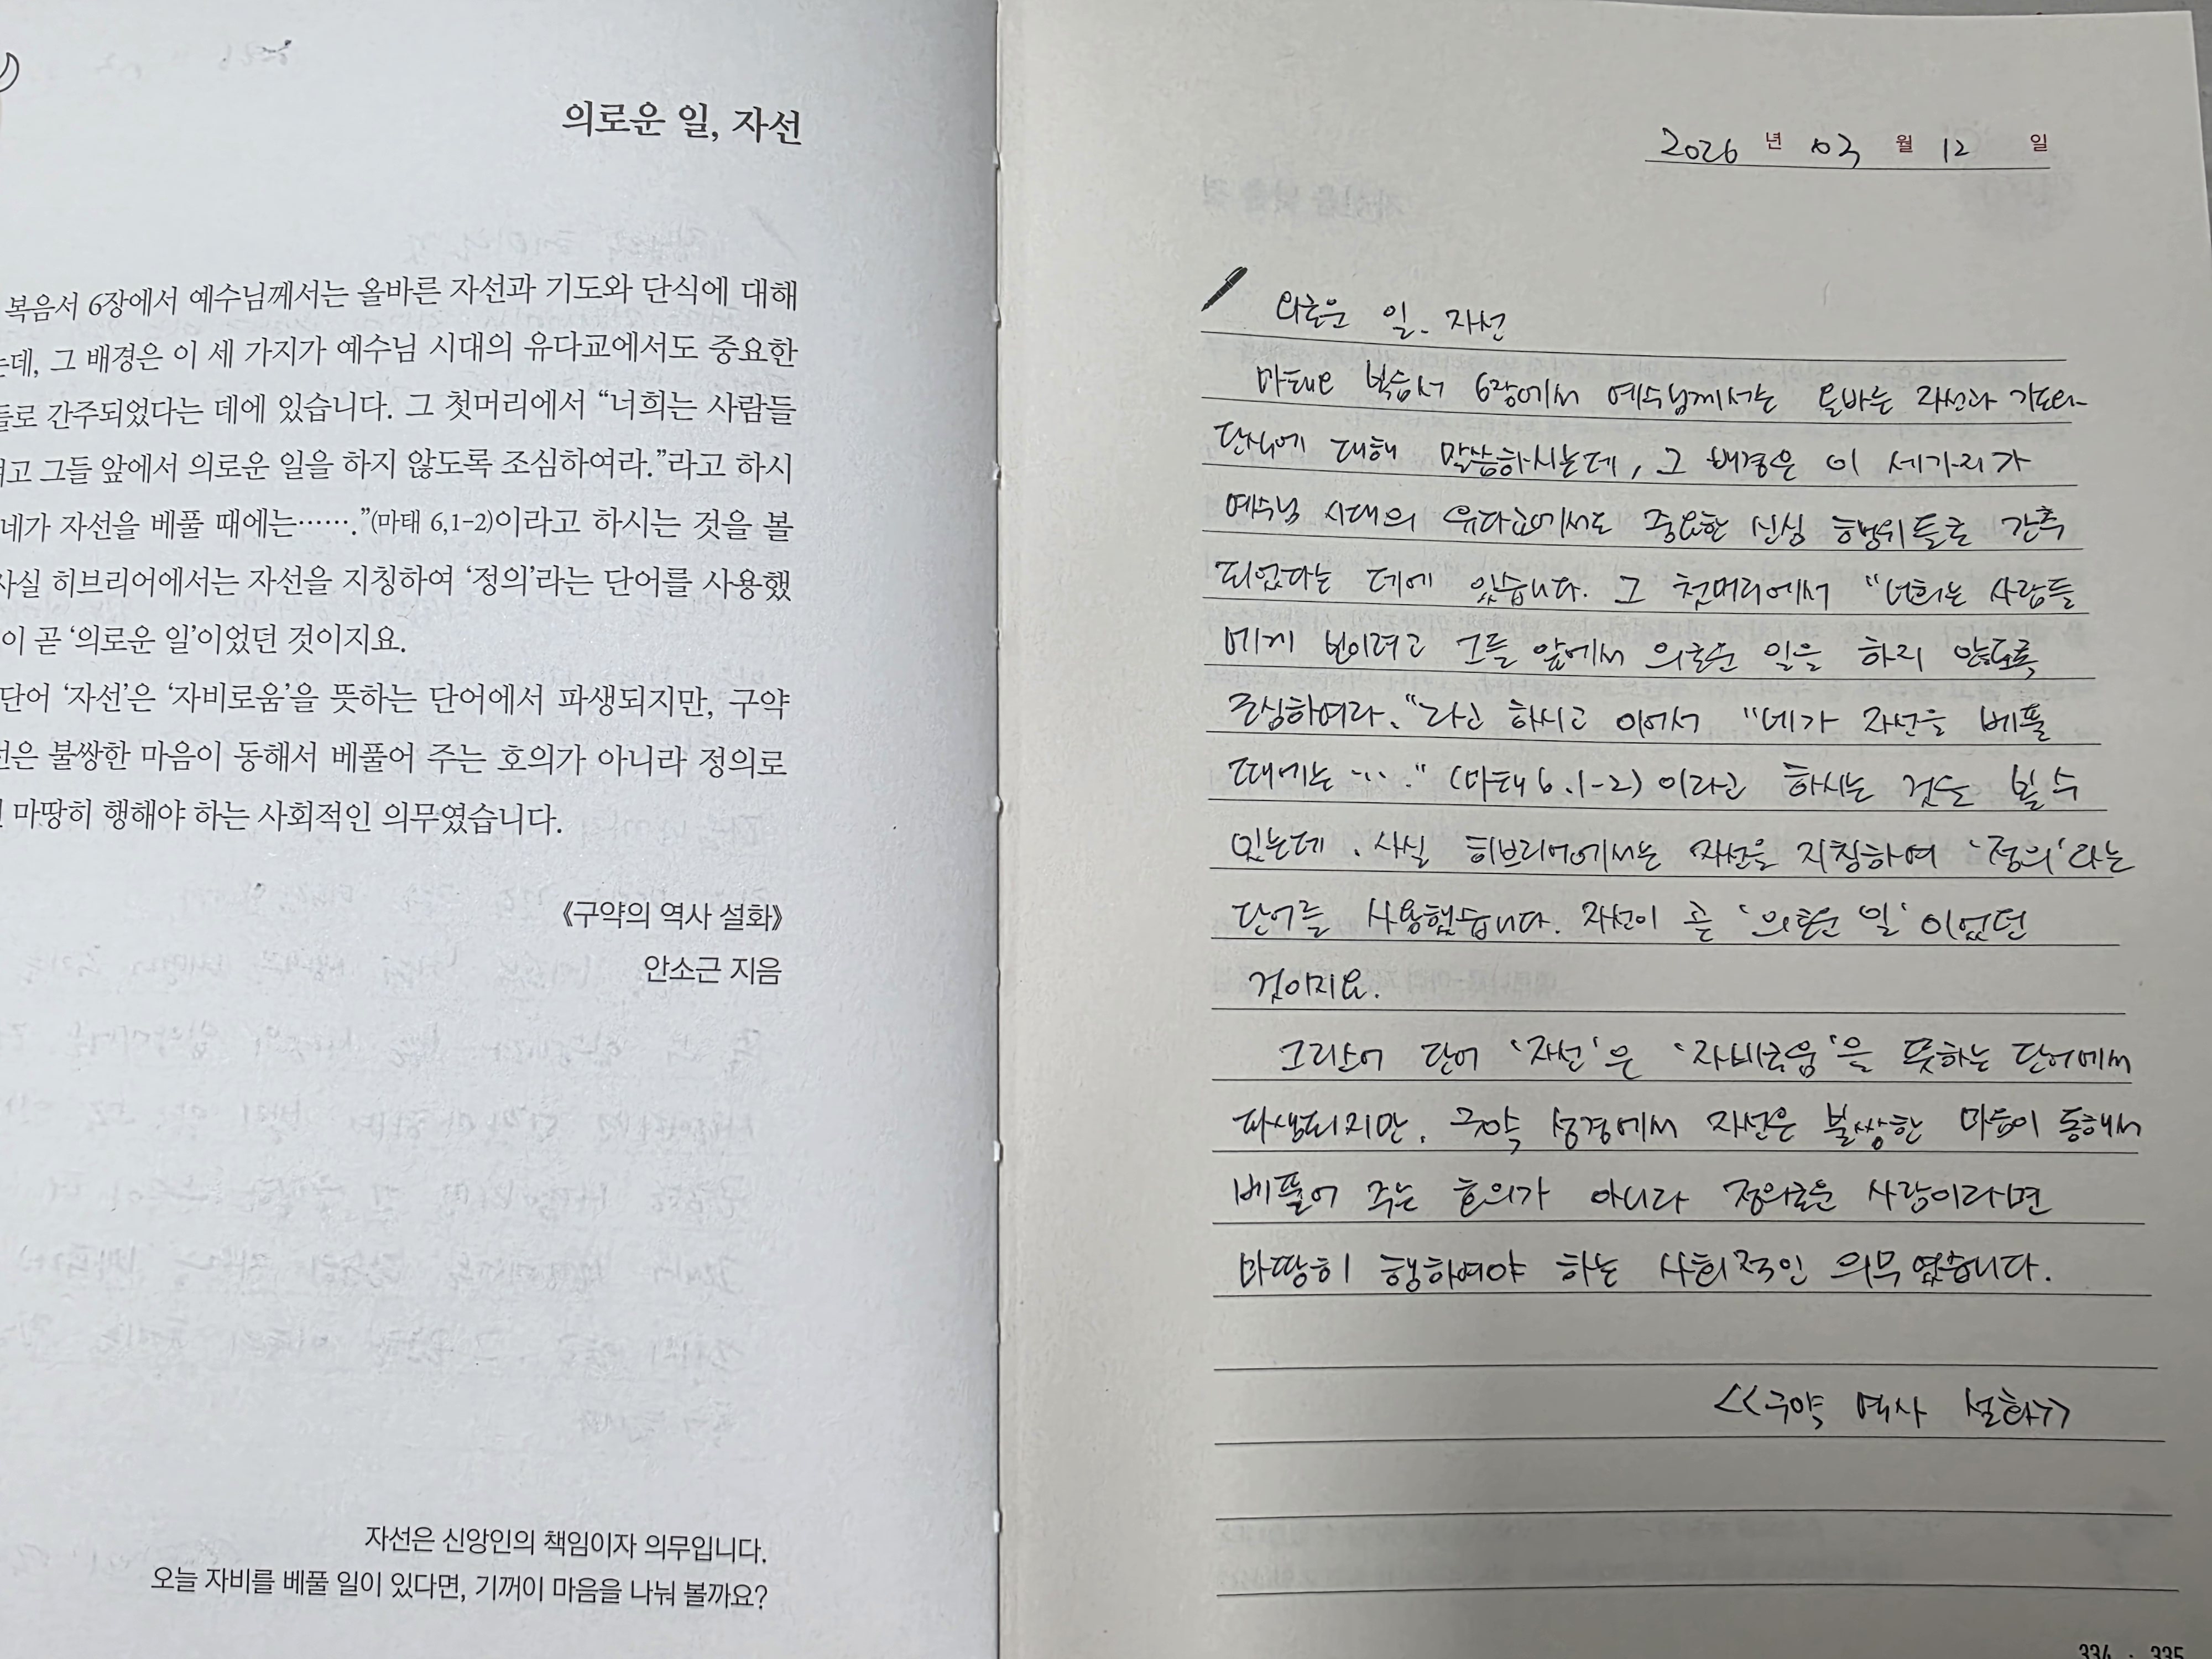 의로운 일, 자선
복음서 6장에서 예수님께서는 올바른 자선과 기도와 단식에 대해
는데, 그 배경은 이 세 가지가 예수님 시대의 유다교에서도 중요한
들로 간주되었다는 데에 있습니다. 그 첫머리에서 “너희는 사람들
려고 그들 앞에서 의로운 일을 하지 않도록 조심하여라.”라고 하시
네가 자선을 베풀 때에는…….”(마태 6,1-2)이라고 하시는 것을 볼
사실 히브리어에서는 자선을 지칭하여 ‘정의’라는 단어를 사용했
이 곧 ‘의로운 일’이었던 것이지요.
단어 ‘자선’은 ‘자비로움’을 뜻하는 단어에서 파생되지만, 구약
선은 불쌍한 마음이 동해서 베풀어 주는 호의가 아니라 정의로
마땅히 행해야 하는 사회적인 의무였습니다.
《구약의 역사 설화》
안소근 지음
자선은 신앙인의 책임이자 의무입니다.
오늘 자비를 베풀 일이 있다면, 기꺼이 마음을 나눠 볼까요?
2026 년 03 월 12 일
의로운 일. 자선
마태오 복음서 6장에서 예수님께서는 올바른 자선과 기도와
단식에 대해 말씀하시는데, 그 배경은 이 세가지가
예수님 시대의 유다교에서도 중요한 신심 행위들로 간주
되었다는 데에 있습니다. 그 첫머리에서 “너희는 사람들
에게 보이려고 그들 앞에서 의로운 일을 하지 않도록
조심하여라.“라고 하시고 이어서 “네가 자선을 베풀
때에는 …." (마태 6.1-2) 이라고 하시는 것을 볼 수
있는데. 사실 히브리어에서는 자선을 지칭하여 ‘정의‘라는
단어를 사용했습니다. 자선이 곧 ‘의로운 일‘ 이었던
것이지요.
그리스어 단어 ‘자선‘은 ‘자비로움‘을 뜻하는 단어에서
파생되지만. 구약 성경에서 자선은 불쌍한 마음이 동해서
베풀어 주는 호의가 아니라 정의로운 사람이라면
마땅히 행하여야 하는 사회적인 의무였습니다.
<<구약 역사 설화>>
334 · 335